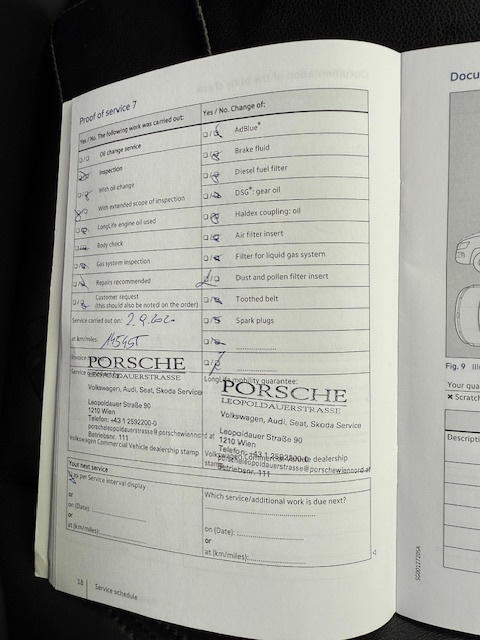 Proof of service 7
Yes / No. The following work was carried out:
Oil change service
Inspection
With oil change
With extended scope of inspection
LongLife engine oil used
Body check
Gas system inspection
Repairs recommended
Customer request
(this should also be noted on the order)
Service carried out on: 2.9.202
at km/miles:
PORSCHE
LEOPOLDAUERSTRASSE
Volkswagen, Audi, Seat, Skoda Service
Leopoldauer Straße 90
1210 Wien
Telefon: +43 1 2592200-0
porscheleopoldauerstrasse@porschewiennord.at
Betriebsnr. 111
Volkswagen Commercial Vehicle dealership stamp
Yes / No. Change of:
AdBlue®
Brake fluid
Diesel fuel filter
DSG®: gear oil
Haldex coupling: oil
Air filter insert
Filter for liquid gas system
Dust and pollen filter insert
Toothed belt
Spark plugs
LongLife mobility guarantee:
PORSCHE
LEOPOLDAUERSTRASSE
Volkswagen, Audi, Seat, Skoda Service
Leopoldauer Straße 90
1210 Wien
Telefon: +43 1 2592200-0
Volkswagen Commercial Vehicle dealership
porscheleopoldauerstrasse@porschewiennord.at
stamp
Betriebsnr. 111
Your next service
as per Service interval display
or
on (Date):
or
at (km/miles):
Which service/additional work is due next?
on (Date):
or
at (km/miles):
18
Service schedule
Docu
Fig. 9
Your qua
Scratch
Descripti